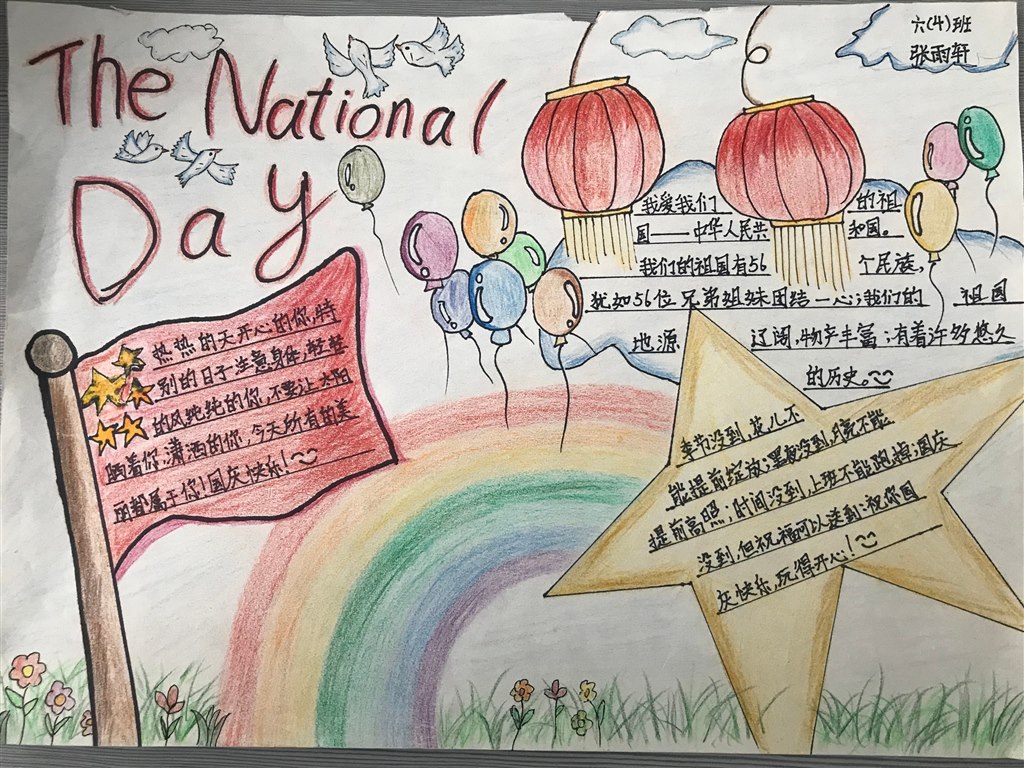 The National
Day
六(4)班
张雨轩
我爱我们的祖
国——中华人民共和国。
我们的祖国有56个民族,
犹如56位兄弟姐妹团结一心;我们的祖国
地源辽阔,物产丰富;有着许多悠久
的历史。
热热的天开心的你,特
别的日子注意身体,轻轻
的风纯纯的你,不要让太阳
晒着你,潇洒的你,今天所有的美
丽都属于你!国庆快乐!
季节没到,花儿不
能提前绽放;黑夜没到,月亮不能
提前高照,时间没到,上班不能跑掉;国庆
没到,但祝福可以送到:祝你国
庆快乐,玩得开心!